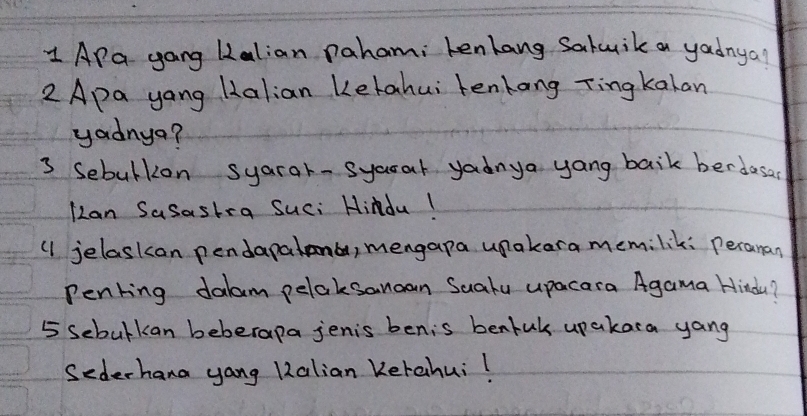 1 Apa yang Kalian pahami tentang Satwika yadnya?
2 Apa yang Kalian Ketahui tentang Tingkatan
yadnya?
3 Sebutkan syarat-syarat yadnya yang baik berdasar
kan Susastra Suci Hindu !
4 jelaskan pendapatanu, mengapa upakara memiliki peranan
penting dalam pelaksanaan Suatu upacara Agama Hindu?
5 Sebutkan beberapa jenis benis bentuk upakara yang
Sederhana yang Kalian Ketahui !